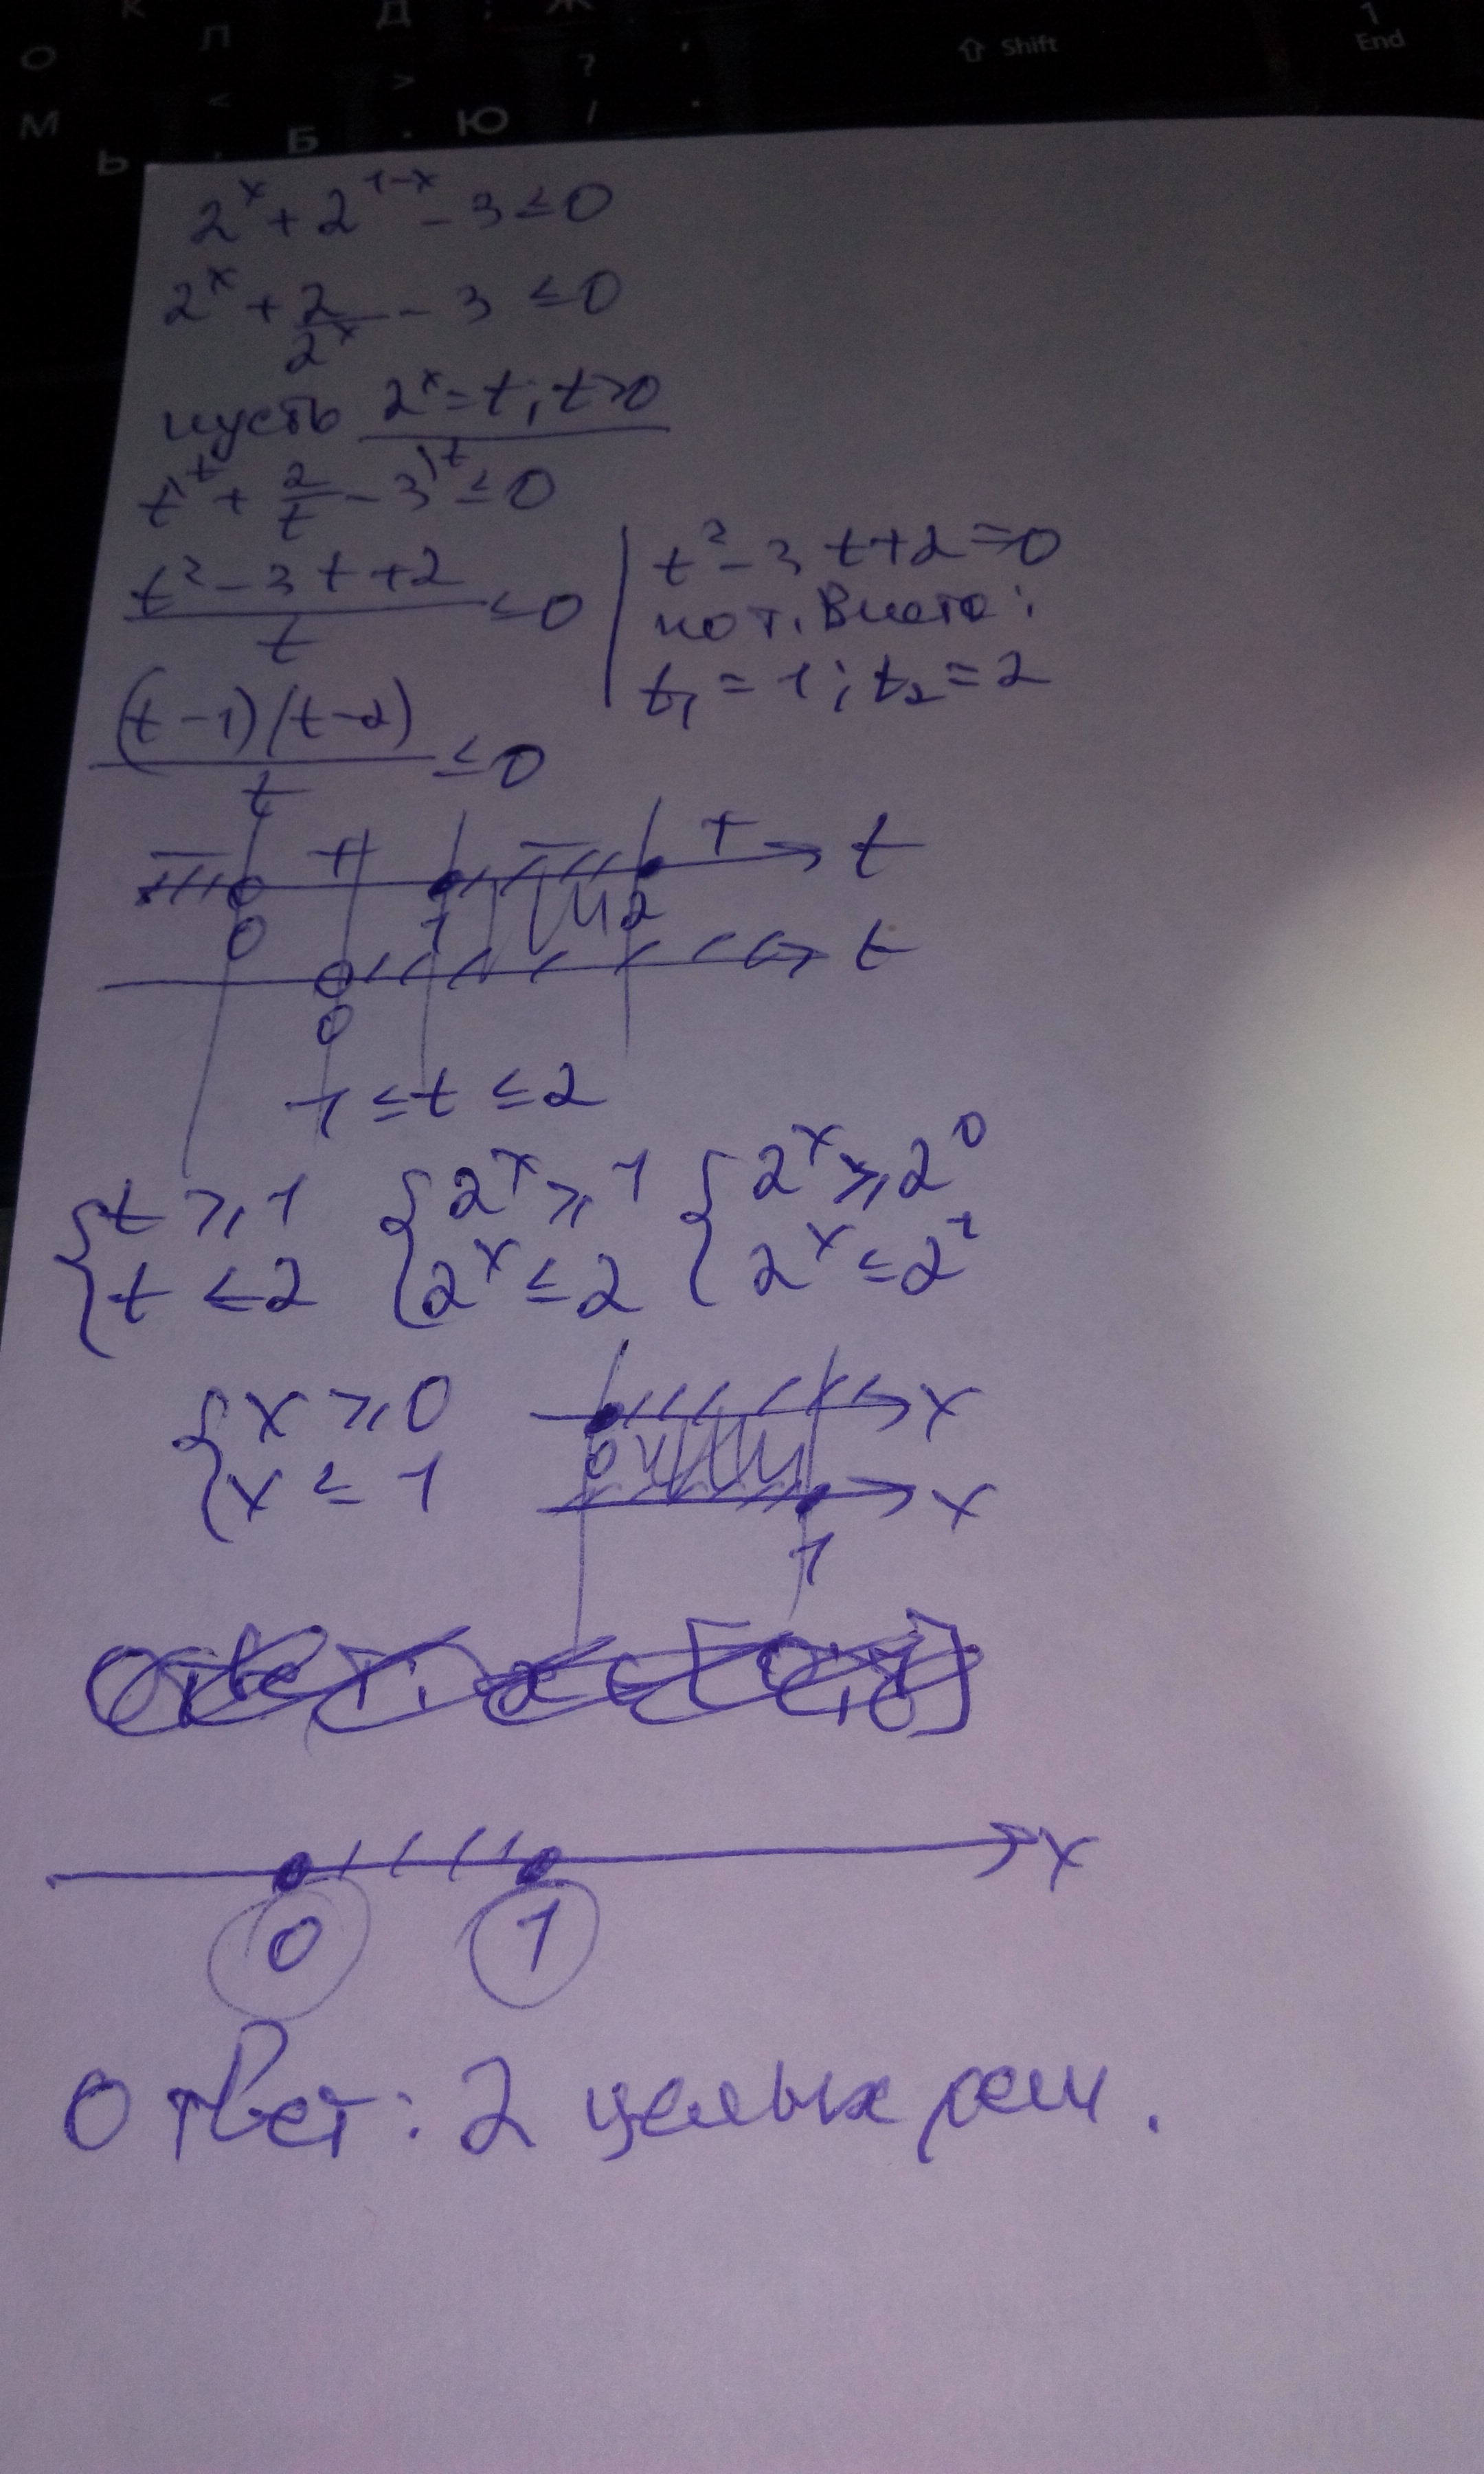 К Д : Ж
О Л , ⇧ Shift 1 End
М < > ?
Ь , Б . Ю / .
2ˣ + 2¹⁻ˣ - 3 ≤ 0
2ˣ + 2/2ˣ - 3 ≤ 0
пусть 2ˣ = t; t > 0
t + 2/t - 3 ≤ 0
(t² - 3t + 2)/t ≤ 0
t² - 3t + 2 = 0
по т. Виета:
t₁ = 1; t₂ = 2
(t-1)(t-2)/t ≤ 0
- + - + t
0 1 2
t
0
1 ≤ t ≤ 2
{ t ≥ 1 { 2ˣ ≥ 1 { 2ˣ ≥ 2⁰
t ≤ 2 2ˣ ≤ 2 2ˣ ≤ 2¹
{ x ≥ 0 x
0
x ≤ 1 x
1
Ответ: x ∈ [0;1]
x
0 1
Ответ: 2 целых реш.